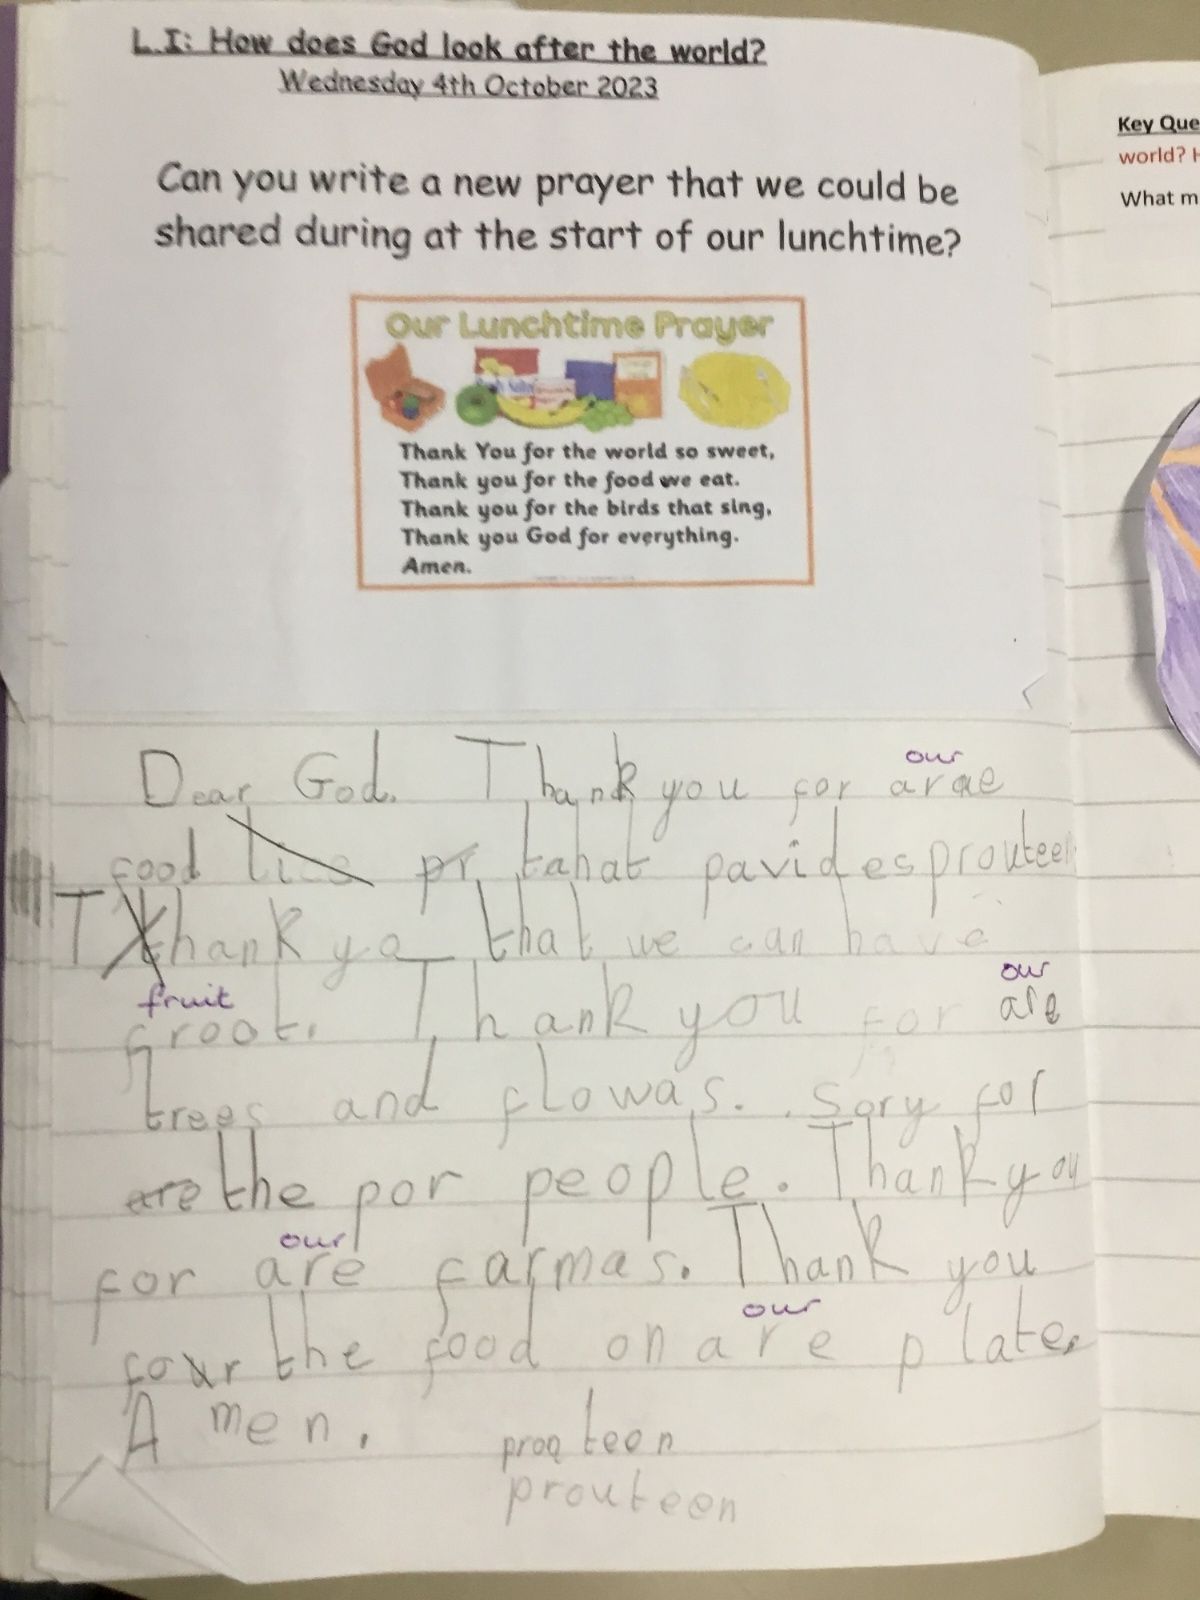 L.I: How does God look after the world?
Wednesday 4th October 2023
Can you write a new prayer that we could be
shared during at the start of our lunchtime?
Our Lunchtime Prayer
Thank You for the world so sweet,
Thank you for the food we eat.
Thank you for the birds that sing,
Thank you God for everything.
Amen.
our
Dear God. Thank you for arae
food pr tahat pavides prouteen
Thank yo that we can have
fruit our
froot. Thank you for are
trees and flowas. Sory for
are the por people. Thank you
our
for are farmas. Thank you
our
four the food on are plate.
Amen.
proteen
prouteen
Key Que
world? H
What m